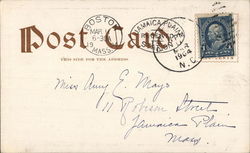 Post Card
THIS SIDE FOR THE ADDRESS.
BOSTON
MAR
6-30
MASS.
JAMAICA PLAIN
1904
Miss Amy E. Mayo
11 Robison Street
Jamaica Plain
Mass.